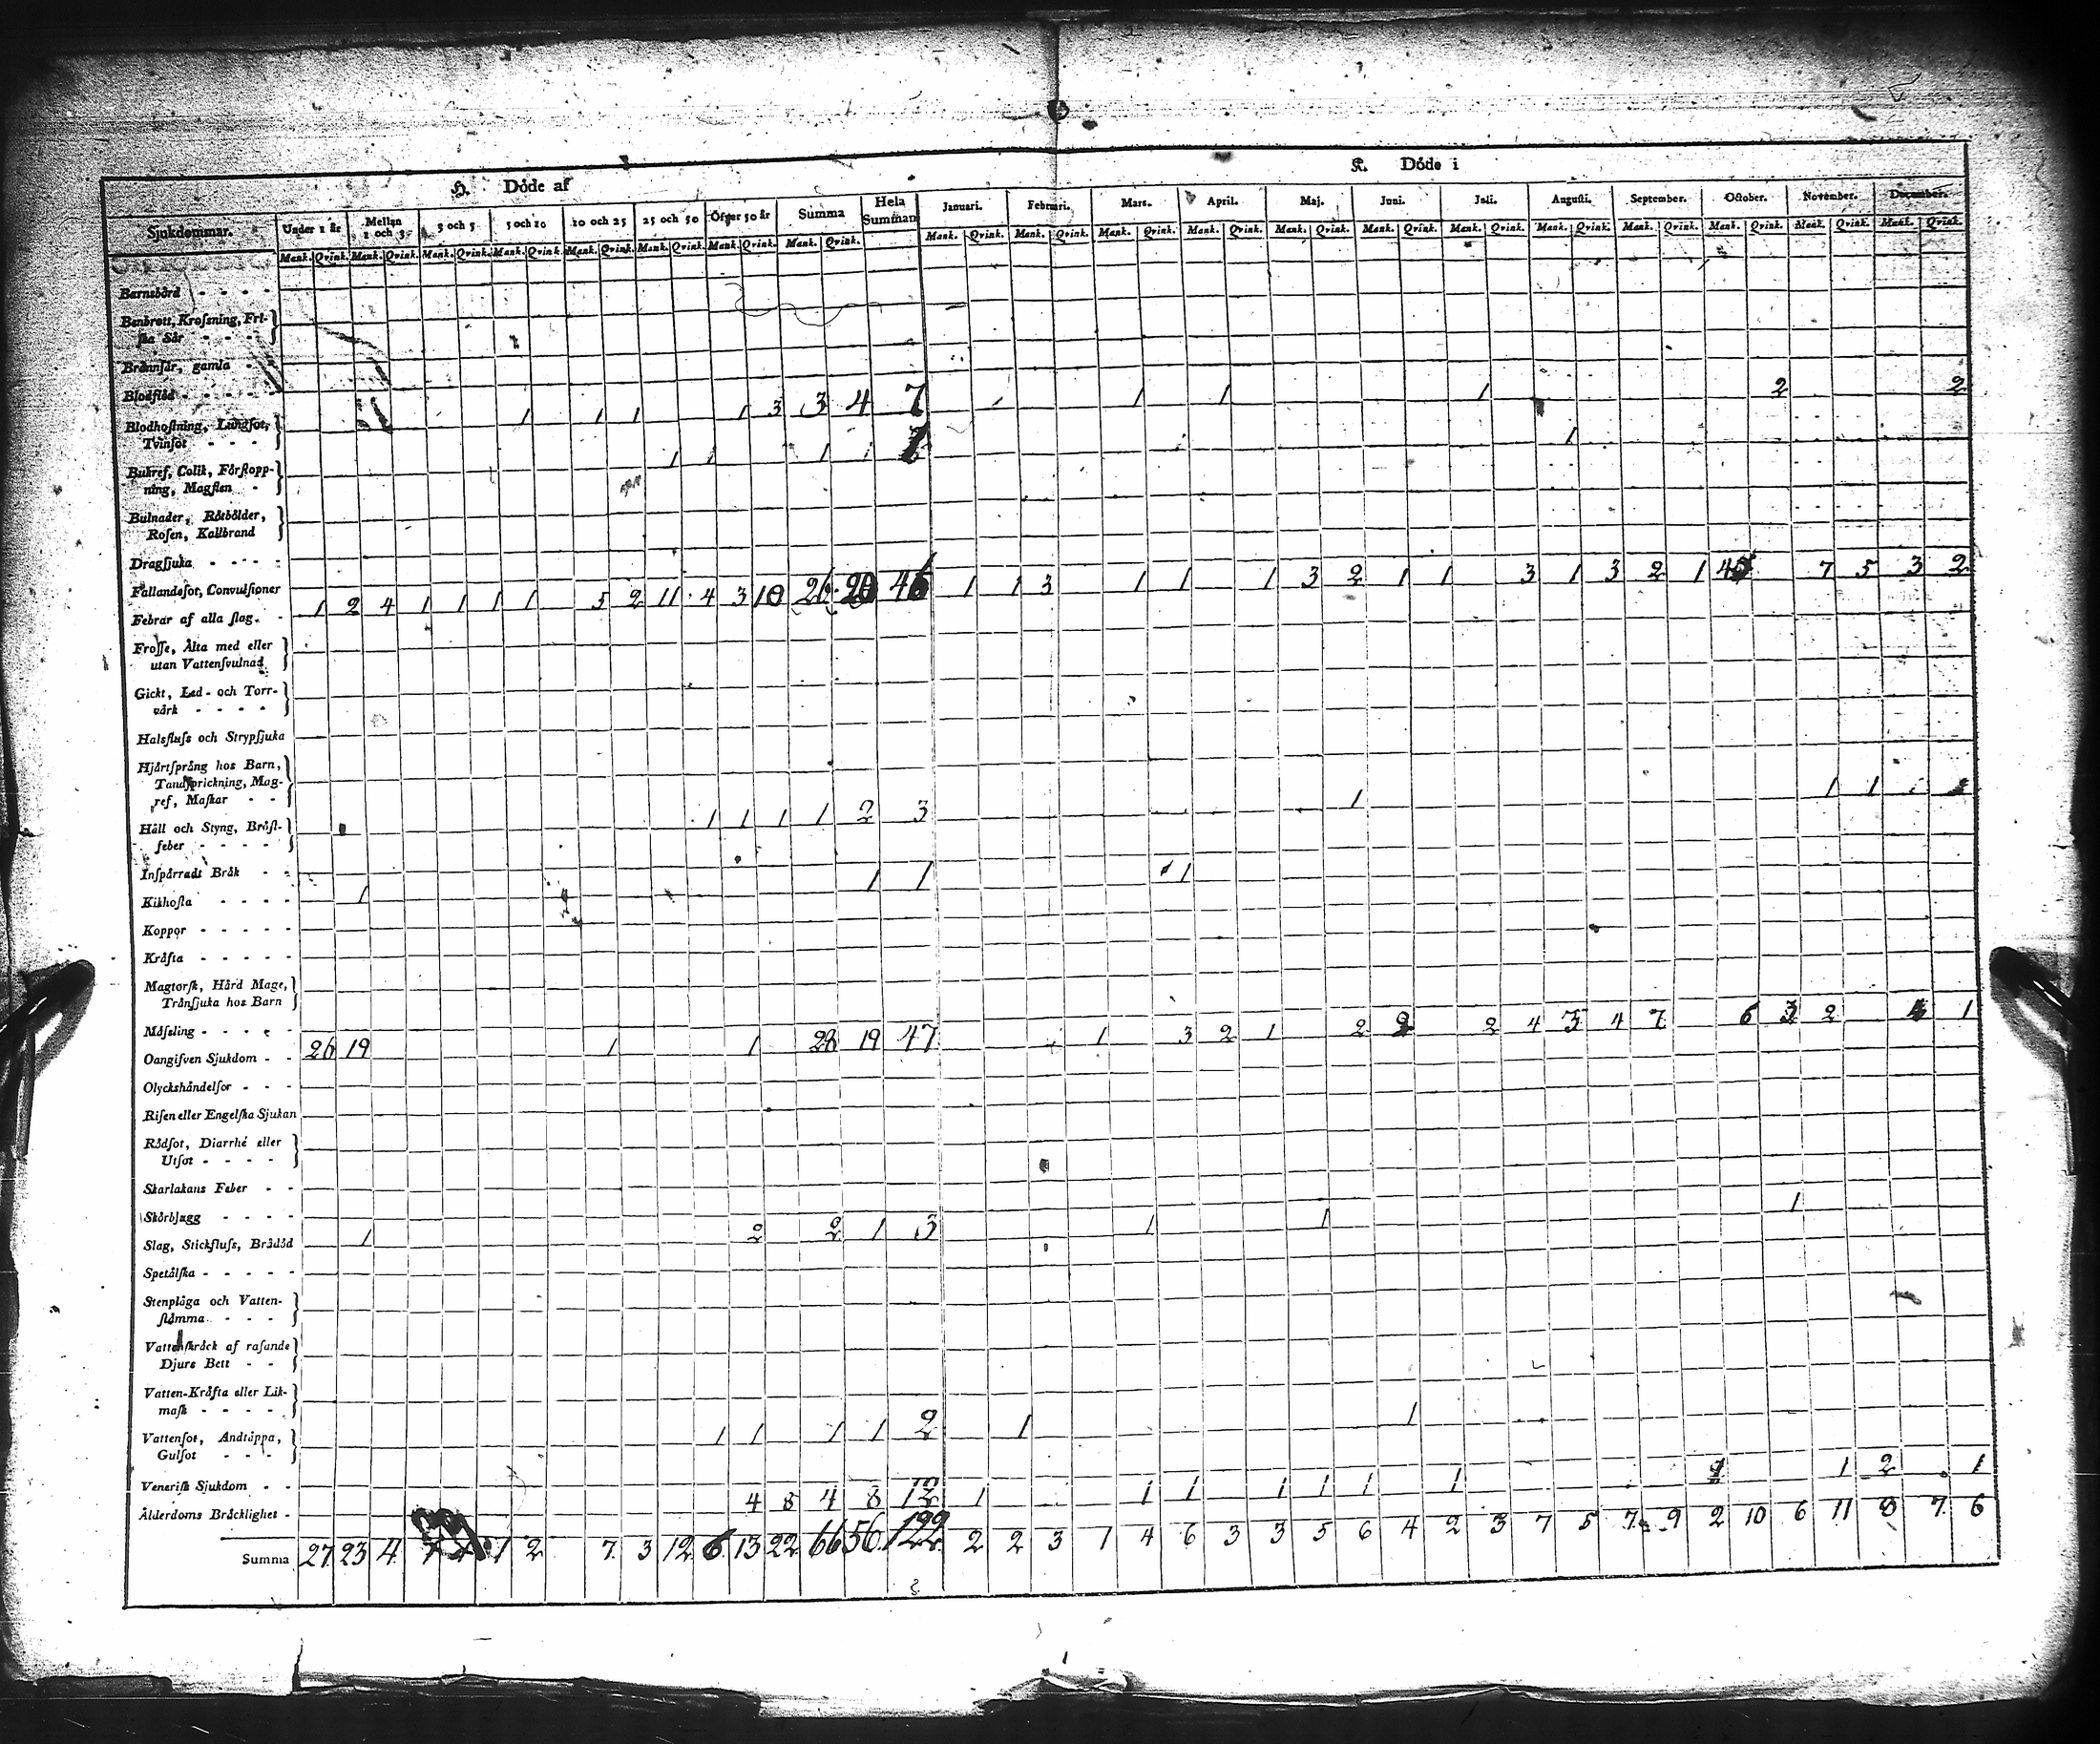 H. Döde af
K. Döde i
Sjukdommar. Under 1 år Mellan 1 och 3 3 och 5 5 och 10 10 och 25 25 och 50 Öfver 50 år Summa Hela Summan Januari. Februari. Mars. April. Maj. Juni. Juli. Augusti. September. October. November. December.
Mank. Qvink. Mank. Qvink. Mank. Qvink. Mank. Qvink. Mank. Qvink. Mank. Qvink. Mank. Qvink. Mank. Qvink. Mank. Qvink. Mank. Qvink. Mank. Qvink. Mank. Qvink. Mank. Qvink. Mank. Qvink. Mank. Qvink. Mank. Qvink. Mank. Qvink. Mank. Qvink. Mank. Qvink. Mank. Qvink.
Barnsbörd - - - -
Benbrott, Krosning, Fri-
ska Sår - - -
Brännsår, gamla -
Blodflöd - - - -
Blodhostning, Lungsot,
Tvinsot - - - 1 1 1 1 3 3 4 7 1 1 1 2 2
Bukref, Colik, Förstopp-
ning, Magsten - 1 1 1 1
Bulnader, Rötbölder,
Rosen, Kallbrand
Dragsjuka - - - -
Fallandesot, Convulsioner
Febrar af alla slag. - 1 2 4 1 1 1 1 5 2 11 4 3 10 26 20 46 1 1 3 1 1 1 3 2 1 1 3 1 3 2 1 7 5 3 2
Frosse, Älta med eller
utan Vattensvulnad
Gickt, Led- och Torr-
värk - - - -
Halsfluss och Strypsjuka
Hjärtsprång hos Barn,
Tandsprickning, Mag-
ref, Maskar - -
Håll och Styng, Bröst-
feber - - - - 1 1 1 1 2 3 1 1 1
Inspärradt Bråk - -
Kikhosta - - - - 1 1 1 1
Koppor - - - - -
Kräfta - - - - -
Magtorsk, Hård Mage,
Trånsjuka hos Barn
Mässling - - - - -
Oangifven Sjukdom - - 26 19 1 1 28 19 47 1 3 2 1 2 2 2 4 3 4 7 6 3 2 1
Olyckshändelser - - -
Risen eller Engelska Sjukan
Rödsot, Diarrhé eller
Utsot - - - -
Skarlakans Feber - -
Skörbjugg - - - -
Slag, Stickfluss, Brådöd 1 2 2 1 3 1 1 1
Spetälska - - - - -
Stenplåga och Vatten-
stämma - - -
Vattenskräck af rasande
Djurs Bett - -
Vatten-Kräfta eller Lik-
mask - - - -
Vattensot, Andtäppa,
Gulsot - - - 1 1 1 1 2 1 1
Venerisk Sjukdom - -
Ålderdoms Bräcklighet - 4 8 4 8 12 1 1 1 1 1 1 1 1 2 1
Summa 27 23 4 1 2 7 3 12 6 13 22 66 56 122 2 2 3 1 4 6 3 3 5 6 4 2 3 7 5 7 9 2 10 6 11 8 7 6